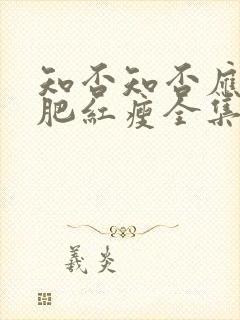 知否知否應
肥紅瘦全集
義炎